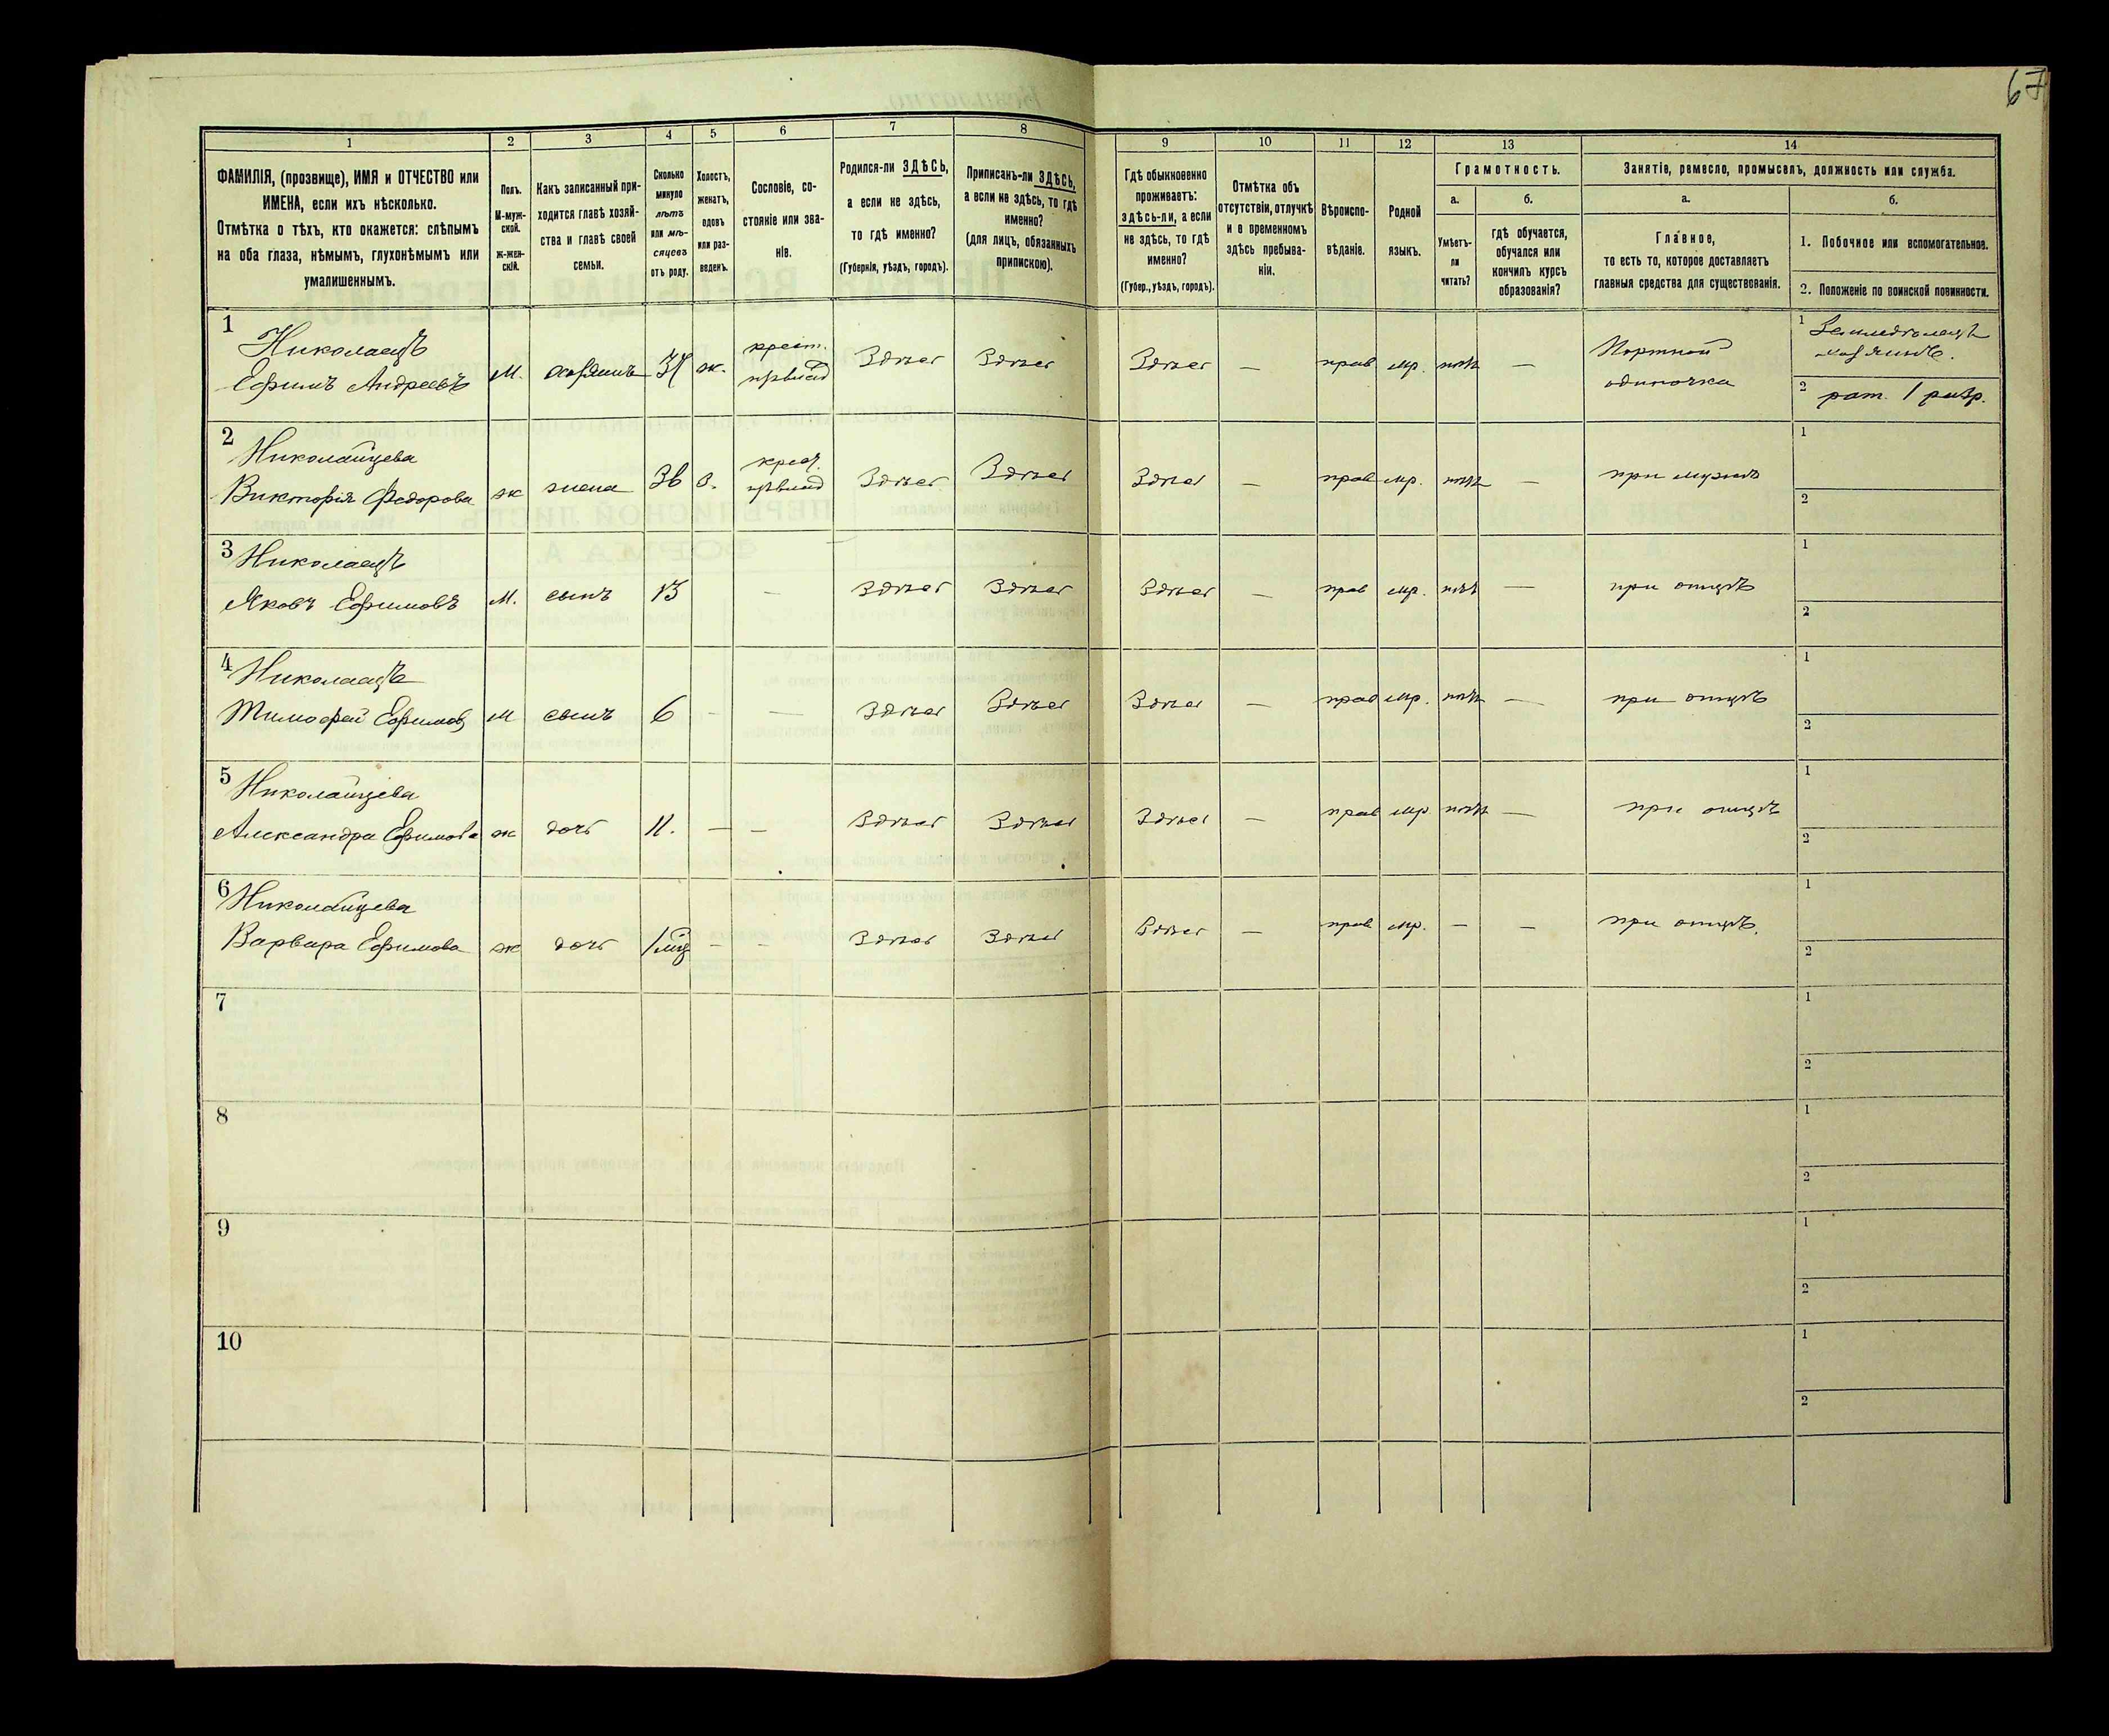 67
1 2 3 4 5 6 7 8 9 10 11 12 13 14
ФАМИЛІЯ, (прозвище), ИМЯ и ОТЧЕСТВО или
ИМЕНА, если ихъ нѣсколько.
Отмѣтка о тѣхъ, кто окажется: слѣпымъ
на оба глаза, нѣмымъ, глухонѣмымъ или
умалишеннымъ.
Полъ.
М-муж-
ской.
ж-жен-
скій.
Какъ записанный при-
ходится главѣ хозяй-
ства и главѣ своей
семьи.
Сколько
минуло
лѣтъ
или мѣ-
сяцевъ
отъ роду.
Холостъ,
женатъ,
вдовъ
или раз-
веденъ.
Сословіе, со-
стояніе или зва-
ніе.
Родился-ли ЗДѢСЬ,
а если не здѣсь,
то гдѣ именно?
(Губернія, уѣздъ, городъ).
Приписанъ-ли ЗДѢСЬ,
а если не здѣсь, то гдѣ
именно?
(для лицъ, обязанныхъ
припискою).
Гдѣ обыкновенно
проживаетъ:
здѣсь-ли, а если
не здѣсь, то гдѣ
именно?
(Губер., уѣздъ, городъ).
Отмѣтка объ
отсутствіи, отлучкѣ
и о временномъ
здѣсь пребыва-
ніи.
Вѣроиспо-
вѣданіе.
Родной
языкъ.
Грамотность.
а.
Умѣетъ-
ли
читать?
б.
гдѣ обучается,
обучался или
кончилъ курсъ
образованія?
Занятіе, ремесло, промыселъ, должность или служба.
а.
Главное,
то есть то, которое доставляетъ
главныя средства для существованія.
б.
1. Побочное или вспомогательное.
2. Положеніе по воинской повинности.
1 Николаецъ
Ефимъ Андреевъ М. хозяинъ ж. крест. Здѣсь Здѣсь Здѣсь — прав мр. нѣтъ — Портной
одиночка
1 Земледѣлецъ
хозяинъ.
2 рат. 1 разр.
2 Николайцева
Викторія Федорова ж жена 36 з. крест. Здѣсь Здѣсь Здѣсь — прав мр. нѣтъ — при мужѣ
1
2
3 Николаецъ
Яковъ Ефимовъ М. сынъ 13 — Здѣсь Здѣсь Здѣсь — прав мр. нѣтъ — при отцѣ
1
2
4 Николаецъ
Тимофей Ефимов М сынъ 6 - — Здѣсь Здѣсь Здѣсь — прав мр. нѣтъ — при отцѣ
1
2
5 Николайцева
Александра Ефимова ж дочь 11. — — Здѣсь Здѣсь Здѣсь — прав мр. нѣтъ — при отцѣ
1
2
6 Николайцева
Варвара Ефимова ж дочь 1 мц - - Здѣсь Здѣсь Здѣсь — прав мр. — — при отцѣ.
1
2
7
1
2
8
1
2
9
1
2
10
1
2